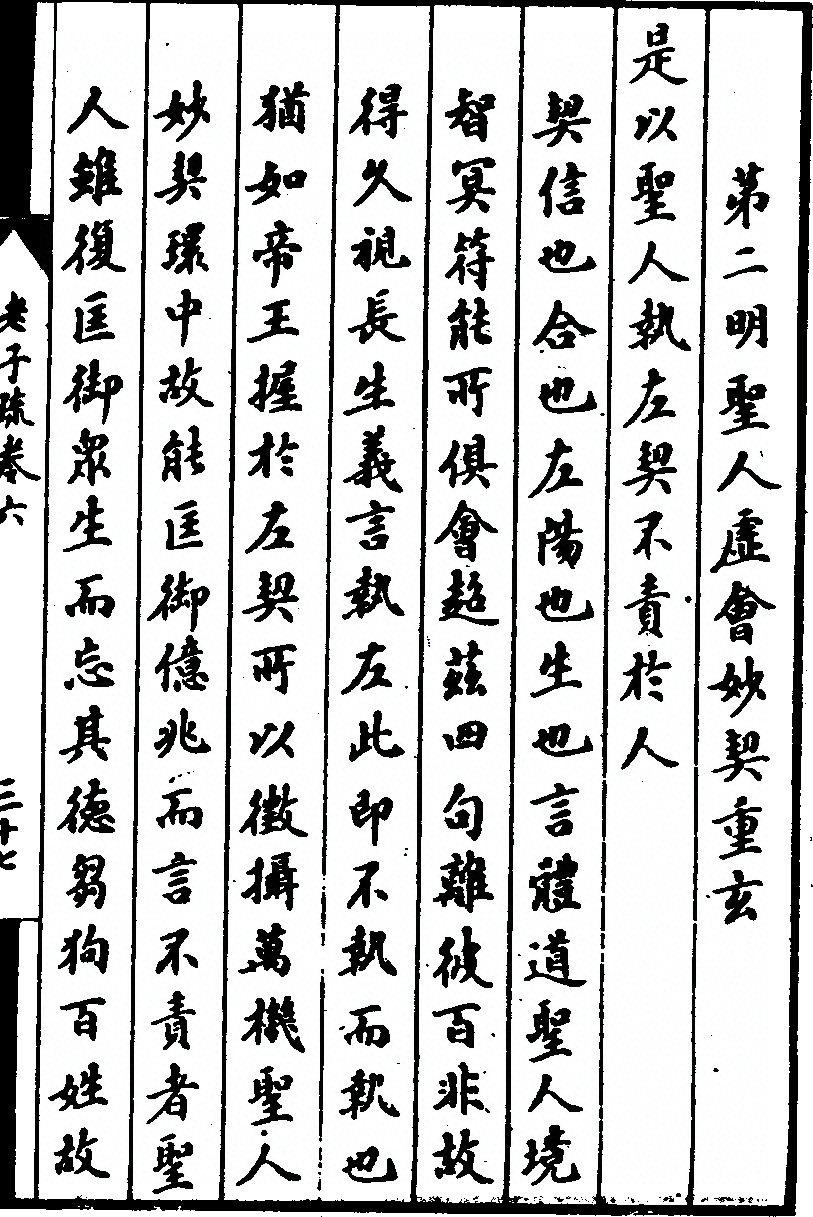 第二明聖人虛會妙契重玄
是以聖人執左契不責於人
契信也合也左陽也生也言體道聖人境
智冥符能所俱會超茲四句離彼百非故
得久視長生義言執左此即不執而執也
猶如帝王握於左契所以徵攝萬機聖人
妙契環中故能匡御億兆而言不責者聖
人雖復匡御眾生而忘其德芻狗百姓故
老子疏卷六
三十七